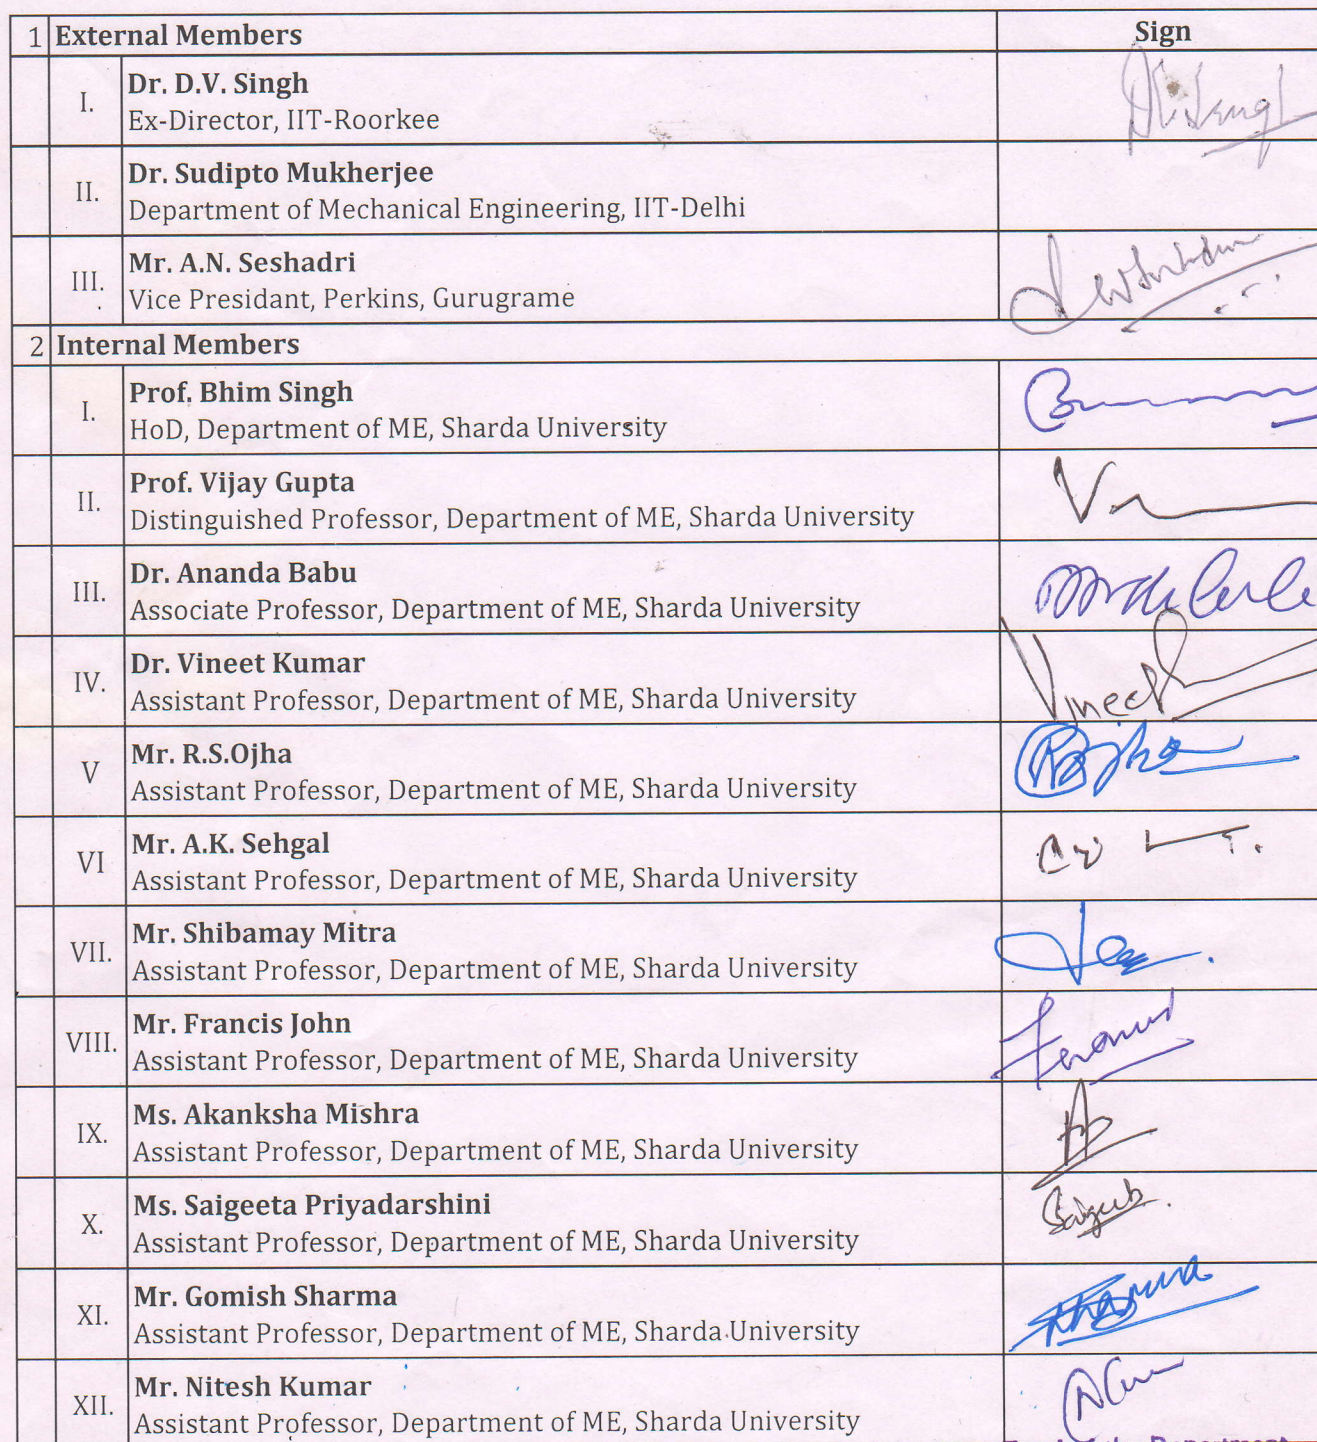 1 External Members Sign
I. Dr. D.V. Singh
Ex-Director, IIT-Roorkee
II. Dr. Sudipto Mukherjee
Department of Mechanical Engineering, IIT-Delhi
III. Mr. A.N. Seshadri
Vice Presidant, Perkins, Gurugrame
2 Internal Members
I. Prof. Bhim Singh
HoD, Department of ME, Sharda University
II. Prof. Vijay Gupta
Distinguished Professor, Department of ME, Sharda University
III. Dr. Ananda Babu
Associate Professor, Department of ME, Sharda University
IV. Dr. Vineet Kumar
Assistant Professor, Department of ME, Sharda University
Vineet
V Mr. R.S.Ojha
Assistant Professor, Department of ME, Sharda University
VI Mr. A.K. Sehgal
Assistant Professor, Department of ME, Sharda University
VII. Mr. Shibamay Mitra
Assistant Professor, Department of ME, Sharda University
VIII. Mr. Francis John
Assistant Professor, Department of ME, Sharda University
IX. Ms. Akanksha Mishra
Assistant Professor, Department of ME, Sharda University
X. Ms. Saigeeta Priyadarshini
Assistant Professor, Department of ME, Sharda University
XI. Mr. Gomish Sharma
Assistant Professor, Department of ME, Sharda University
XII. Mr. Nitesh Kumar
Assistant Professor, Department of ME, Sharda University